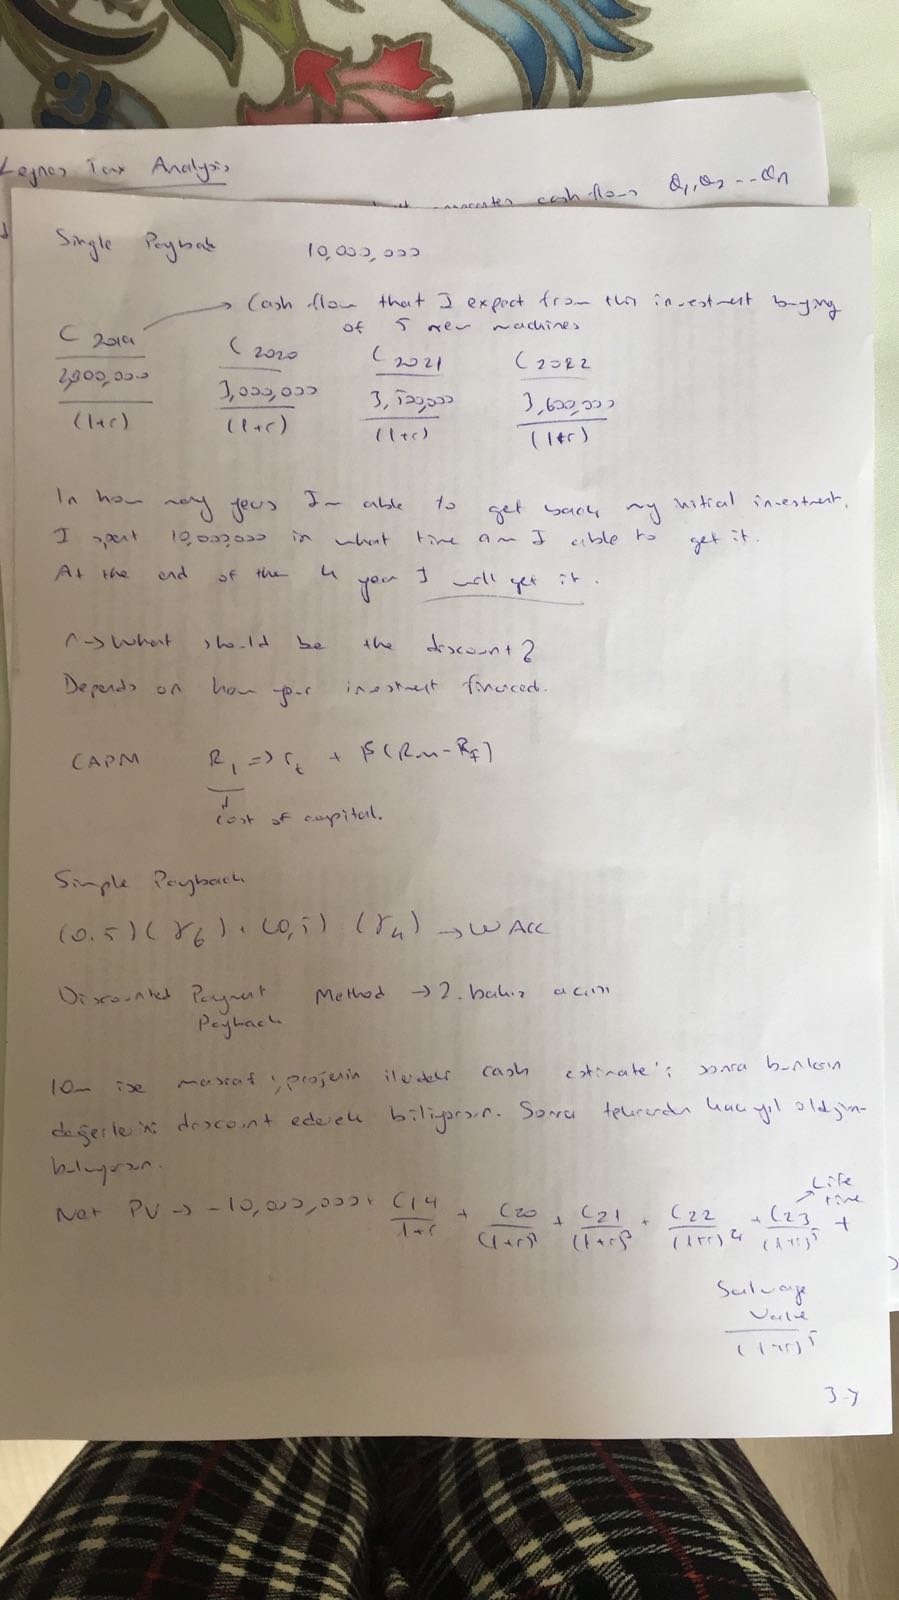 Tax Analysis
cash flows Q1, Q2 ... Qn
Single Payback 10,000,000
Cash flow that I expect from this investment buying
of 5 new machines
C 2019 C 2020 C 2021 C 2022
2,900,000 3,000,000 3,500,000 3,600,000
(1+r) (1+r) (1+r) (1+r)
In how many years I'm able to get back my initial investment.
I spent 10,000,000 in what time am I able to get it.
At the end of the 4 year I will get it.
r → What should be the discount?
Depends on how your investment financed.
CAPM R1 => rt + β(Rm-Rf)
cost of capital.
Simple Payback
(0.5)(r6) + (0,5) (r4) → WACC
Discounted Payment Method → 2. bakış açısı
Payback
10m ise masraf, projenin cash estimate; sonra bunların
değerlerini discount ederek biliyorsun. Sonra tekrardan kaç yıl
buluyorsun.
Life
time
Net PV → -10,000,000 + C14/1+r + C20/(1+r)² + C21/(1+r)³ + C22/(1+r)4 + C23/(1+r)5 +
Salvage
Value
(1+r)5
3-7